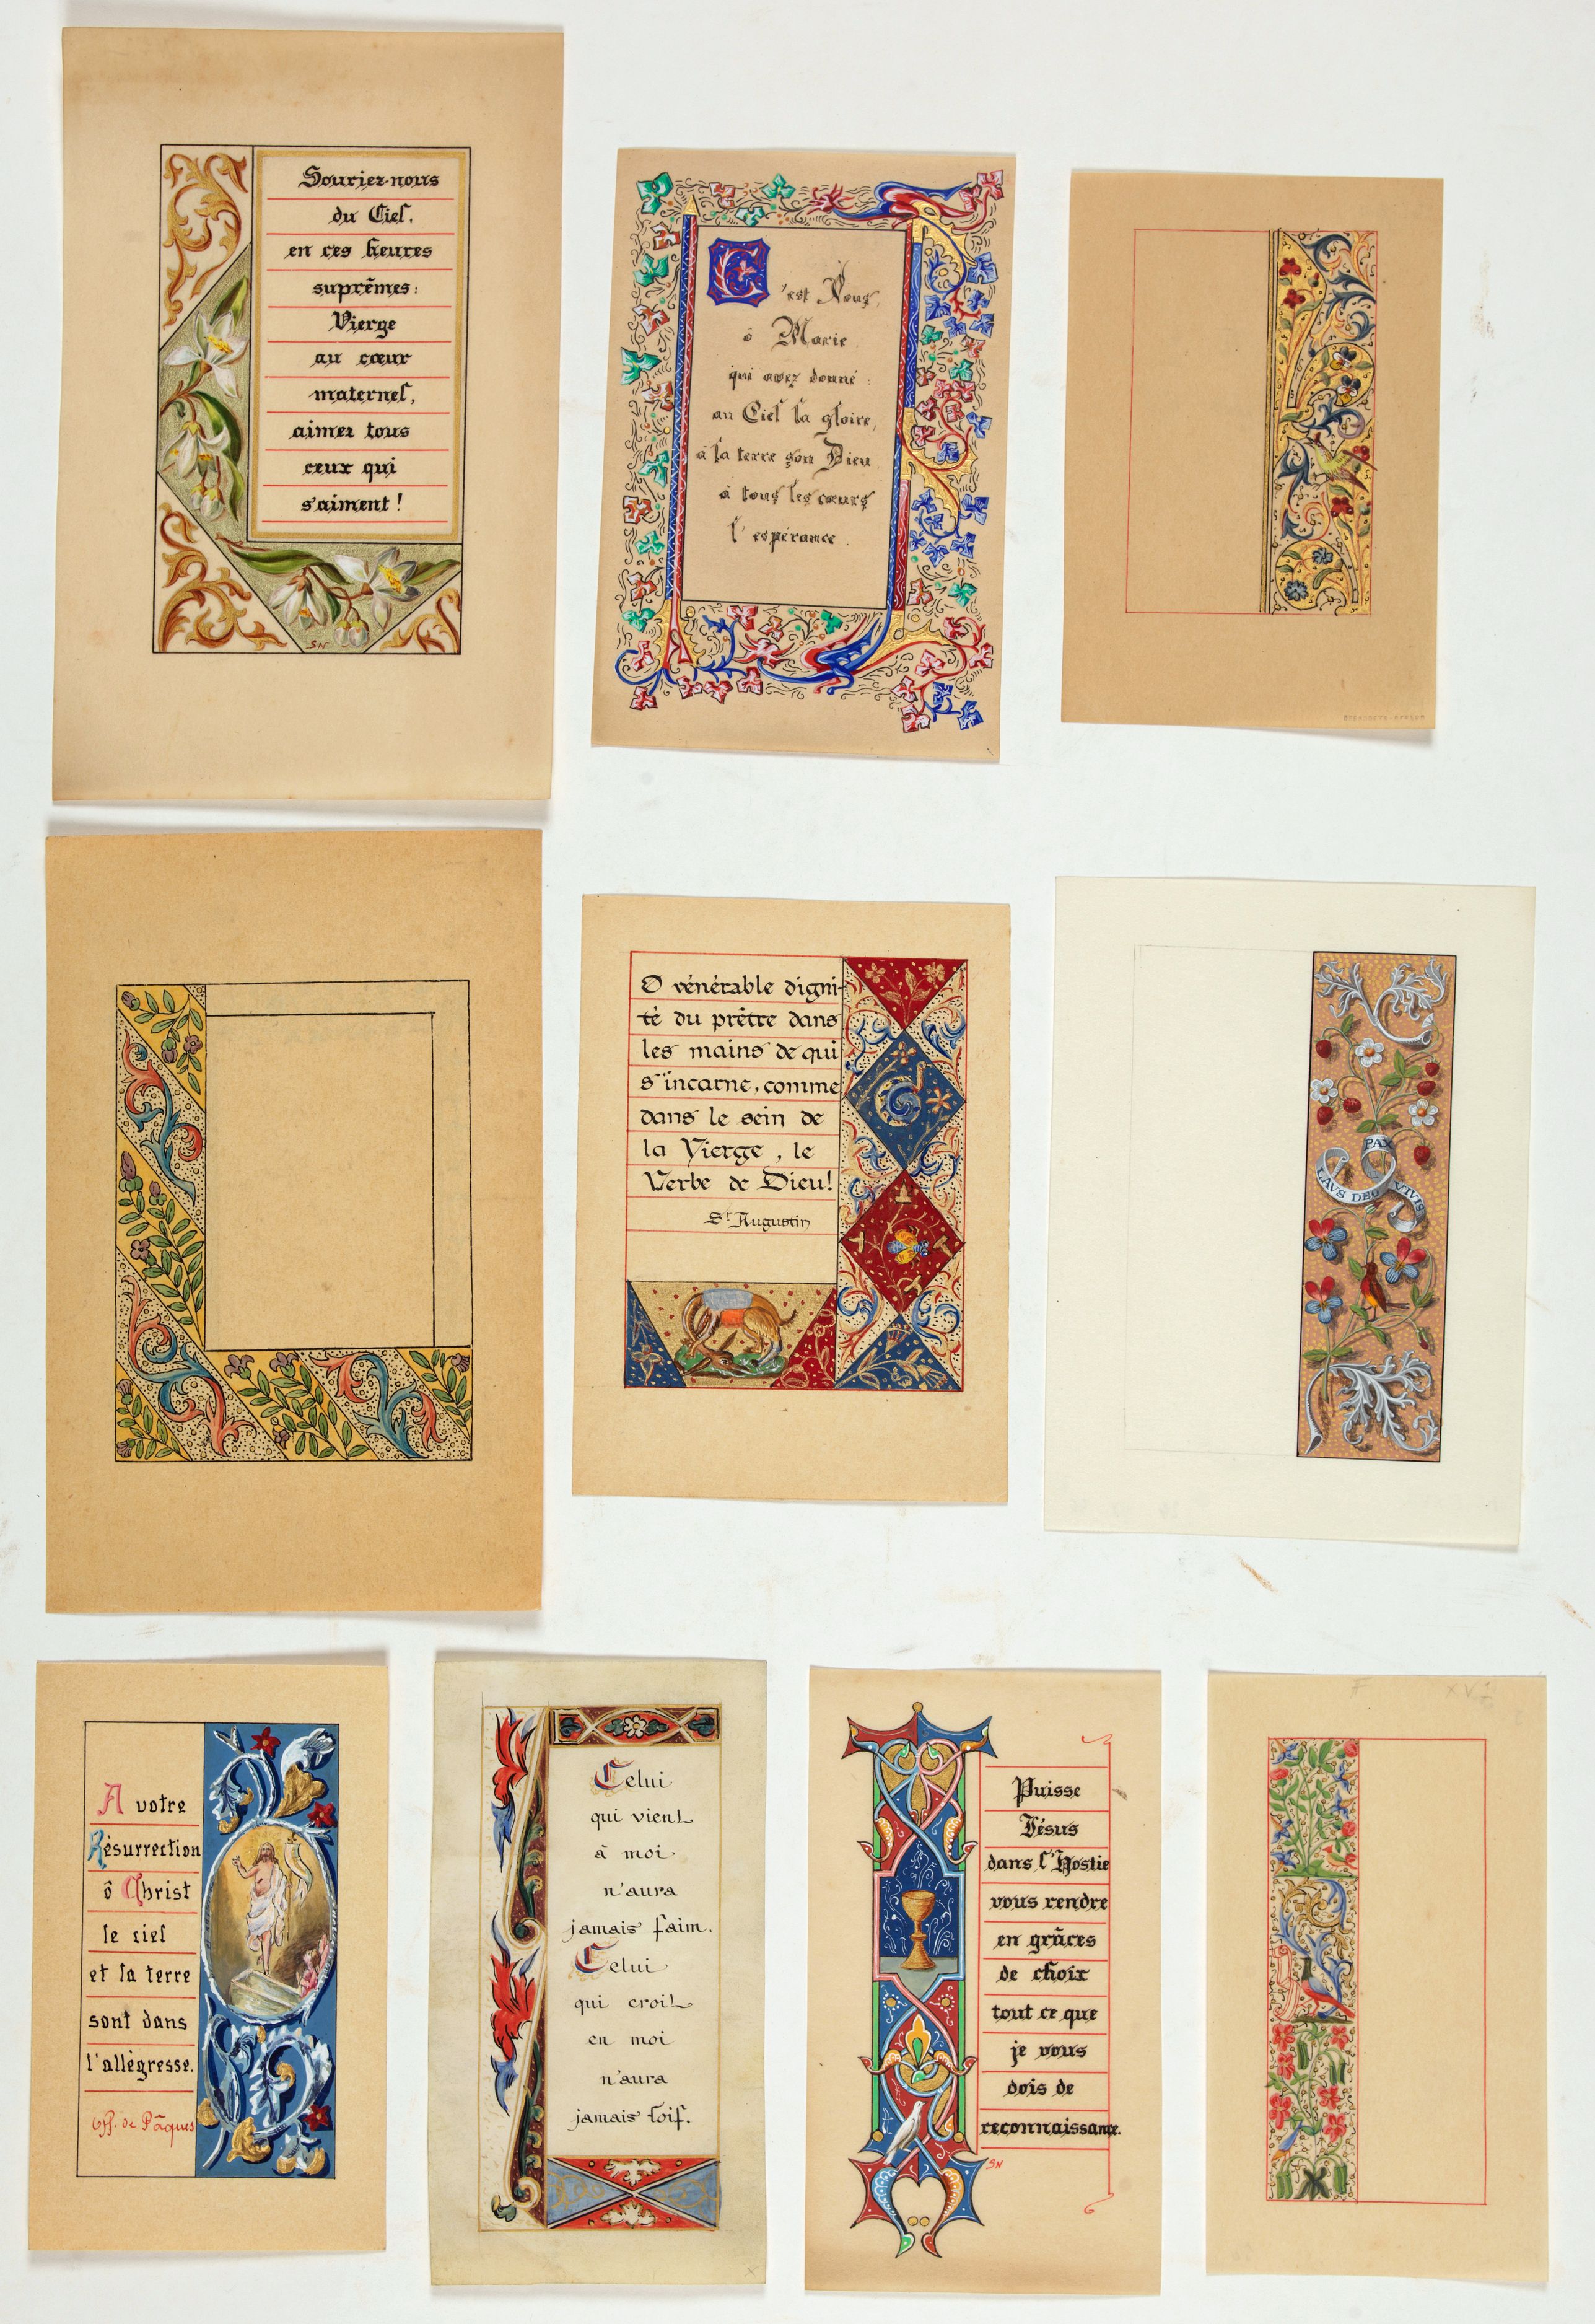 Souriez-nous
du Ciel,
en ces heures
suprêmes:
Vierge
au cœur
maternel,
aimez tous
ceux qui
s'aiment !
SN
C'est Vous,
ô Marie
qui avez donné :
au Ciel la gloire,
à la terre son Dieu
à tous les cœurs
l'espérance.
O vénérable digni-
té du prêtre dans
les mains de qui
s'incarne, comme
dans le sein de
la Vierge, le
Verbe de Dieu!
St Augustin
PAX
LAVS DEO VIVIS
A votre
Résurrection
ô Christ
le ciel
et la terre
sont dans
l'allégresse.
Off. de Pâques
Celui
qui vient
à moi
n'aura
jamais faim.
Celui
qui croit
en moi
n'aura
jamais soif.
Puisse
Jésus
dans l'Hostie
vous rendre
en grâces
de choix
tout ce que
je vous
dois de
reconnaissance.
SN